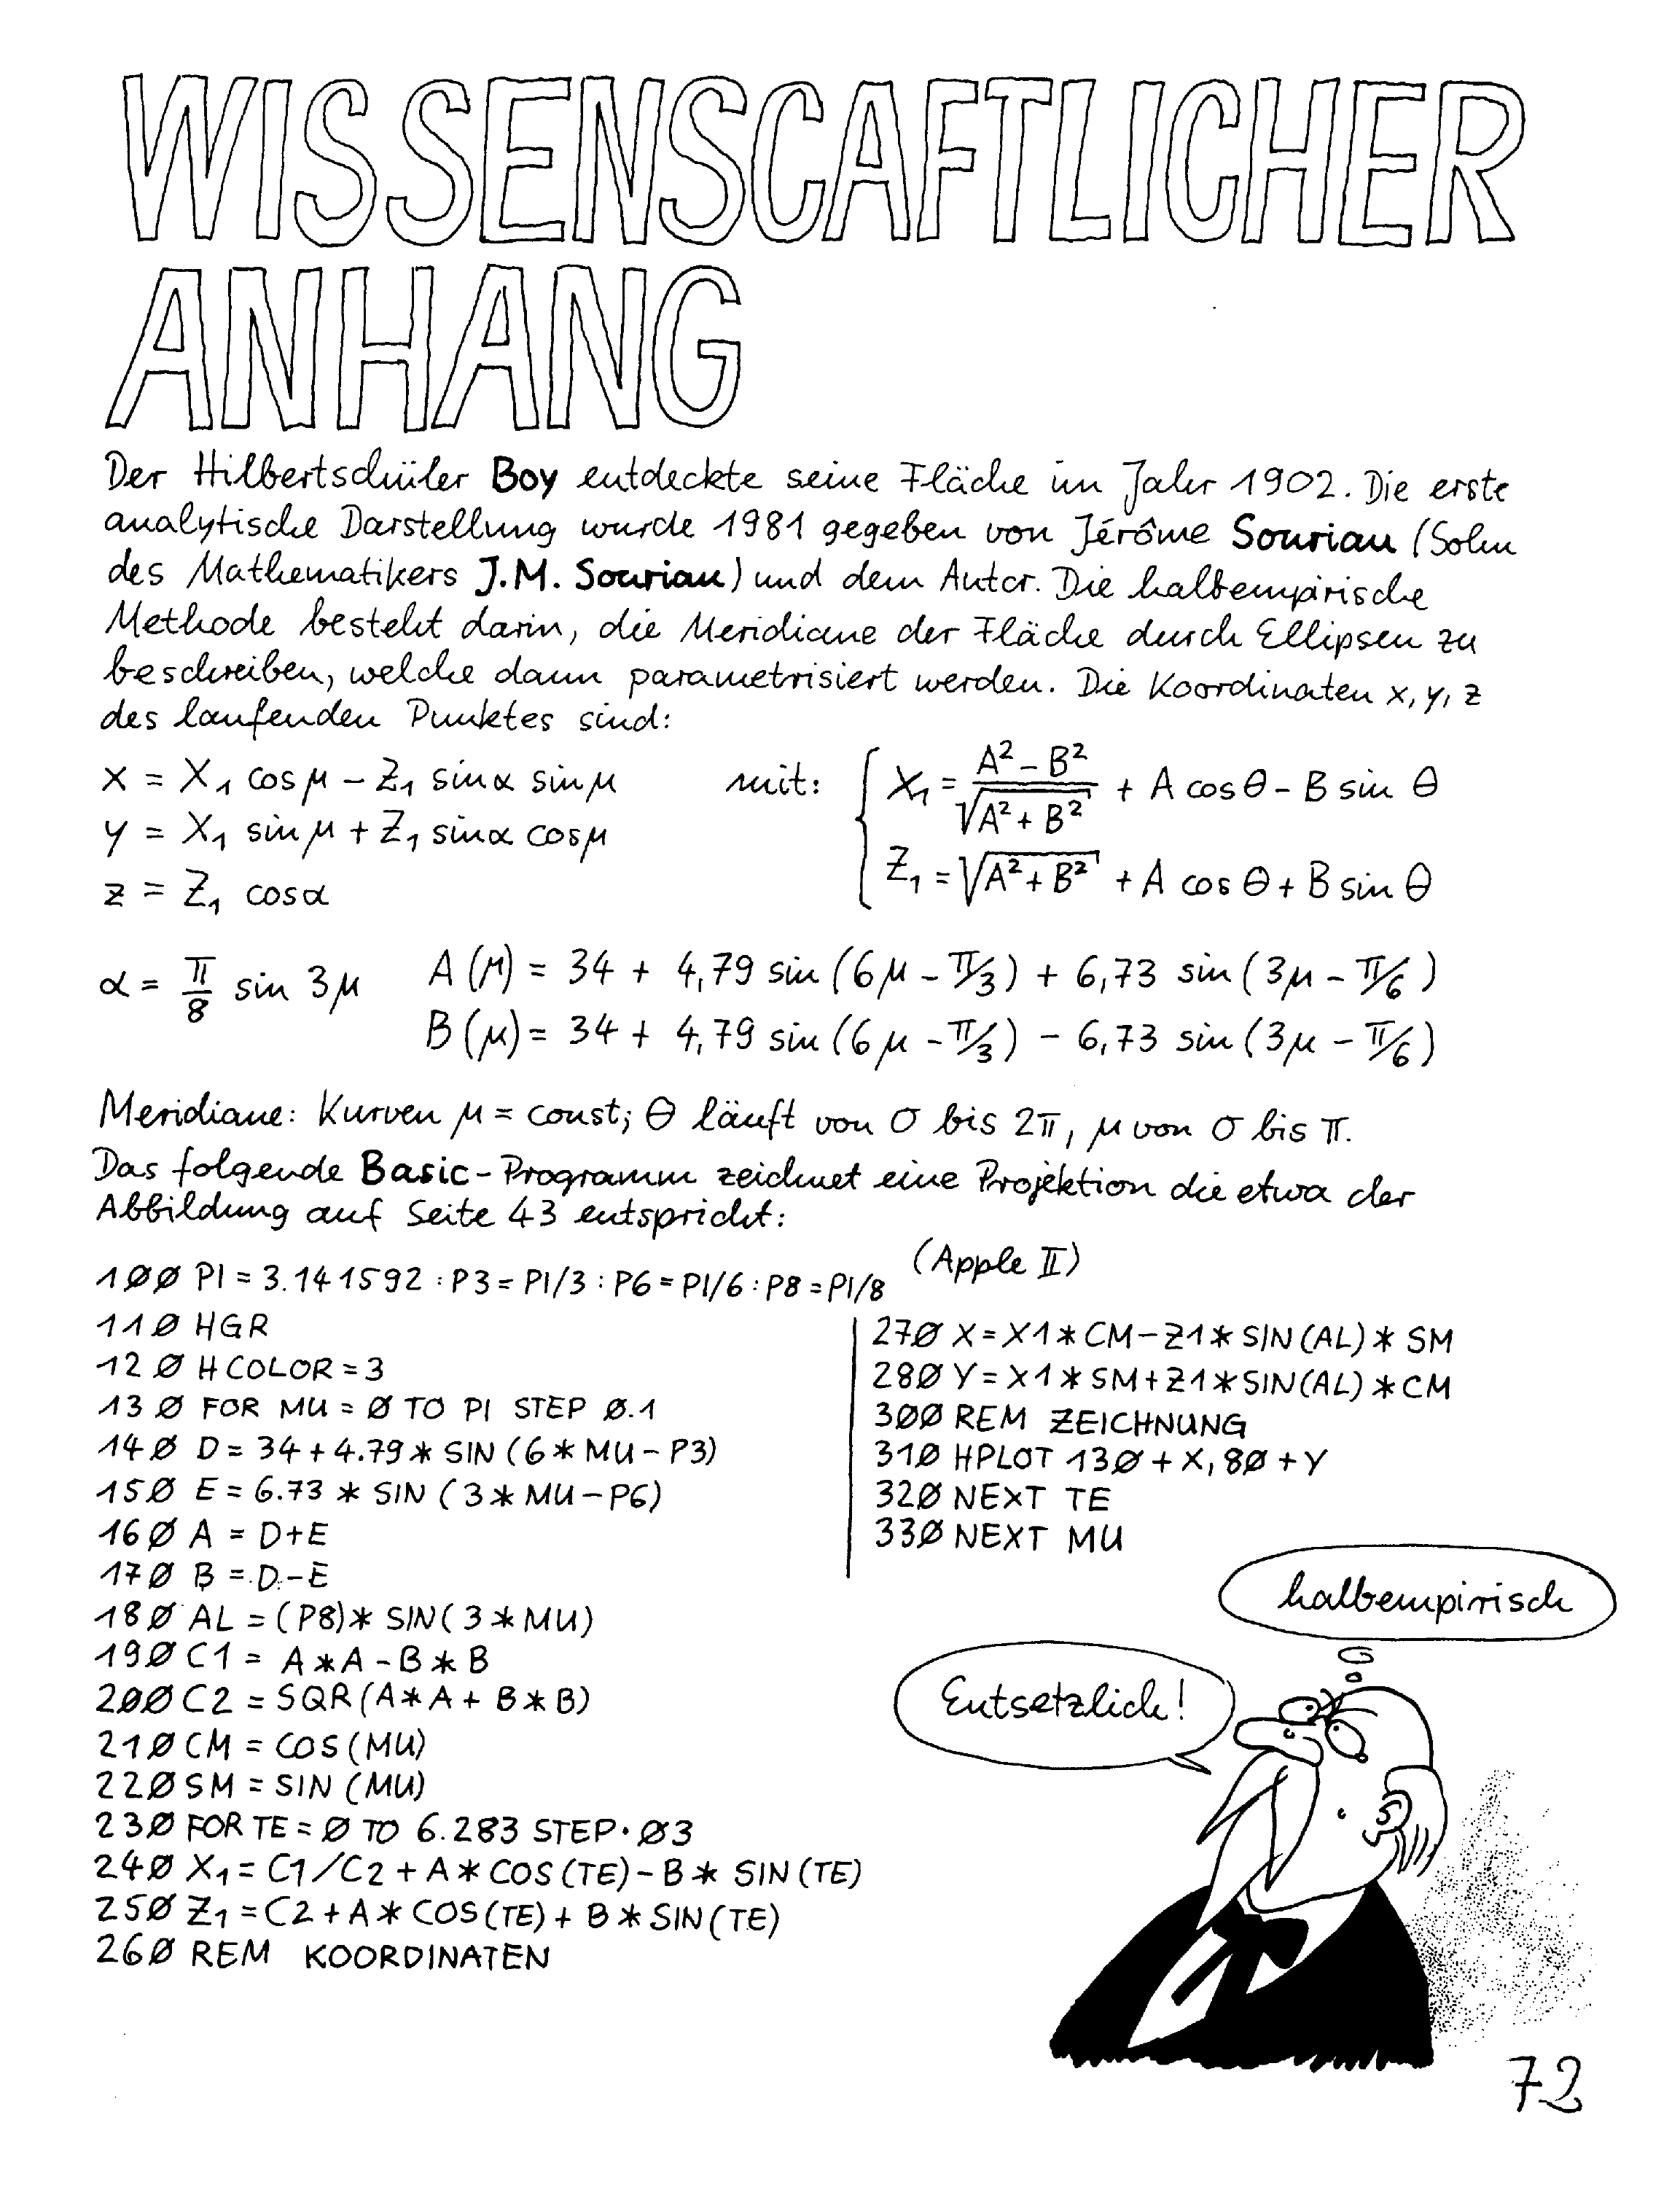 WISSENSCAFTLICHER
ANHANG
Der Hilbertschüler Boy entdeckte seine Fläche im Jahr 1902. Die erste
analytische Darstellung wurde 1981 gegeben von Jérôme Souriau (Sohn
des Mathematikers J.M. Souriau) und dem Autor. Die halbempirische
Methode besteht darin, die Meridiane der Fläche durch Ellipsen zu
beschreiben, welche dann parametrisiert werden. Die Koordinaten x, y, z
des laufenden Punktes sind:
x = X₁ cos μ – Z₁ sin α sin μ
y = X₁ sin μ + Z₁ sin α cos μ
z = Z₁ cos α
mit:
X₁ = (A² – B²)/√(A² + B²) + A cos θ – B sin θ
Z₁ = √(A² + B²) + A cos θ + B sin θ
α = π/8 sin 3μ
A(μ) = 34 + 4,79 sin (6μ – π/3) + 6,73 sin (3μ – π/6)
B(μ) = 34 + 4,79 sin (6μ – π/3) – 6,73 sin (3μ – π/6)
Meridiane: Kurven μ = const; θ läuft von 0 bis 2π, μ von 0 bis π.
Das folgende Basic-Programm zeichnet eine Projektion die etwa der
Abbildung auf Seite 43 entspricht:
(Apple II)
100 PI = 3.141592 : P3 = PI/3 : P6 = PI/6 : P8 = PI/8
110 HGR
120 HCOLOR = 3
130 FOR MU = 0 TO PI STEP 0.1
140 D = 34 + 4.79 * SIN (6 * MU – P3)
150 E = 6.73 * SIN (3 * MU – P6)
160 A = D+E
170 B = D–E
180 AL = (P8) * SIN(3 * MU)
190 C1 = A * A – B * B
200 C2 = SQR(A * A + B * B)
210 CM = COS (MU)
220 SM = SIN (MU)
230 FOR TE = 0 TO 6.283 STEP .03
240 X₁ = C1/C2 + A * COS (TE) – B * SIN (TE)
250 Z₁ = C2 + A * COS (TE) + B * SIN (TE)
260 REM KOORDINATEN
270 X = X1 * CM – Z1 * SIN (AL) * SM
280 Y = X1 * SM + Z1 * SIN (AL) * CM
300 REM ZEICHNUNG
310 HPLOT 130 + X, 80 + Y
320 NEXT TE
330 NEXT MU
halbempirisch
Entsetzlich!
72